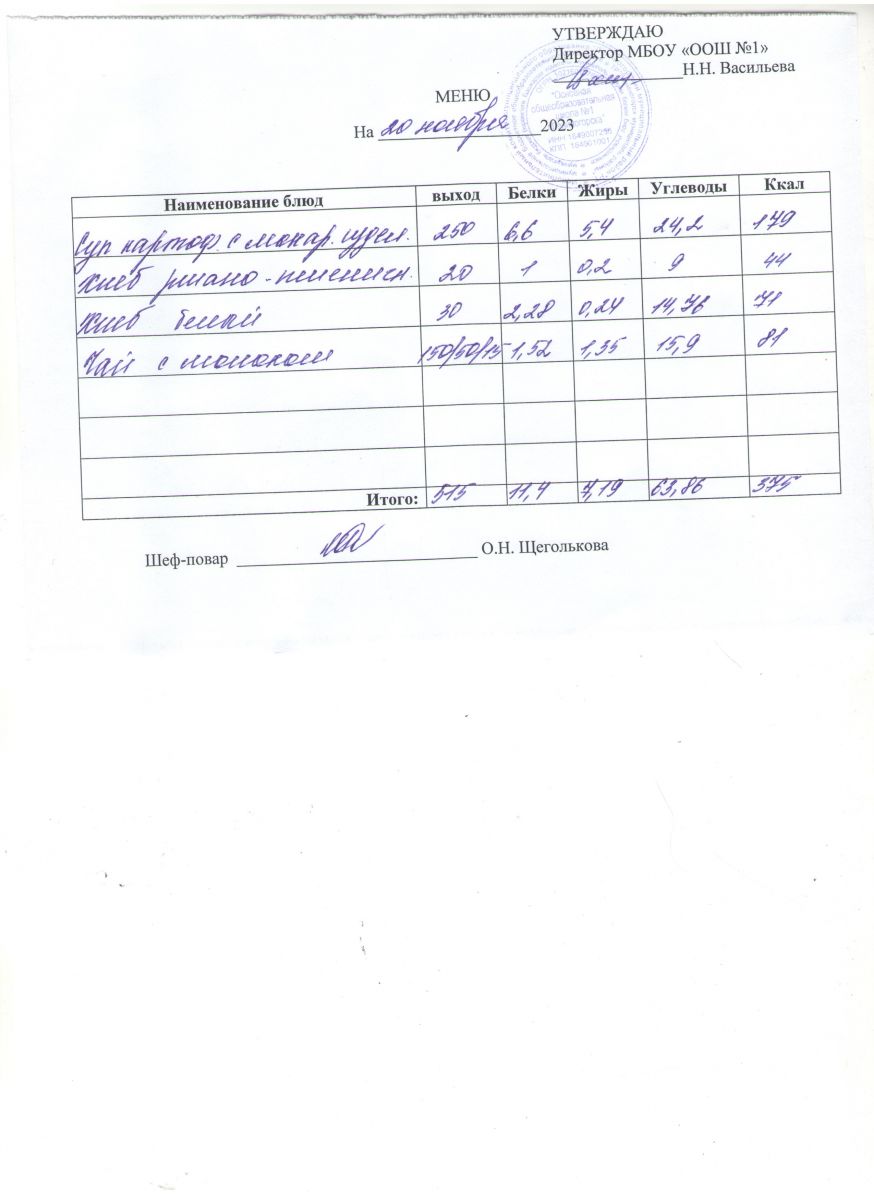 УТВЕРЖДАЮ
Директор МБОУ «ООШ №1»
Н.Н. Васильева
"Основная
общеобразовательная
школа №1
ИНН 1649007255
КПП 164901001
МЕНЮ
На 20 ноября 2023
Наименование блюд выход Белки Жиры Углеводы Ккал
Суп картоф. с макар. издел. 250 6,6 5,4 24,2 179
Хлеб ржано-пшеничн. 20 1 0,2 9 44
Хлеб белый 30 2,28 0,24 14,76 71
Чай с молоком 150/50/15 1,52 1,35 15,9 81
Итого: 515 11,4 7,19 63,86 375
Шеф-повар О.Н. Щеголькова